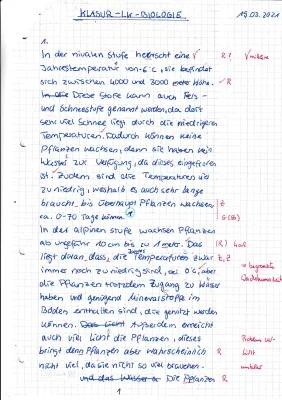 KLASUR-LK-BIOLOGIE. 19.03.2021
1.
In der nivalen Stufe herrscht eine
Jahrestemperatur von -6°C, sie befindet
sich zwischen 4000 und 3000 Höhe. R
Diese Stufe kann auch Fels-
und Schneestufe genannt werden, da dort
sehr viel Schnee liegt durch die niedrigeren
Temperaturen. Dadurch können keine
Pflanzen wachsen, denn sie haben kein
Wasser zur Verfügung, da dieses eingefroren
ist. Zudem sind die Temperaturen viel
zu niedrig, weshalb es auch sehr lange
braucht, bis überhaupt Pflanzen wachsen, Z
ca. 0-70 Tage können.
In der alpinen Stufe wachsen Pflanzen
ab ungefähr 10 cm bis zu 1 metr. Das
liegt daran, dass die Temperaturen zwar Z
immer noch zu niedrig sind, ca 0°C, aber
die Pflanzen trotzdem Zugang zu Wasser
haben und genügend Mineralstoffe im
Boden enthalten sind, die genutzt werden
können. Außerdem erreicht
auch viel Licht die Pflanzen, dieses
bringt den Pflanzen aber wahrscheinlich R
nicht viel, da sie nicht so viel brauchen.
und das Wasser Die Pflanzen R
1